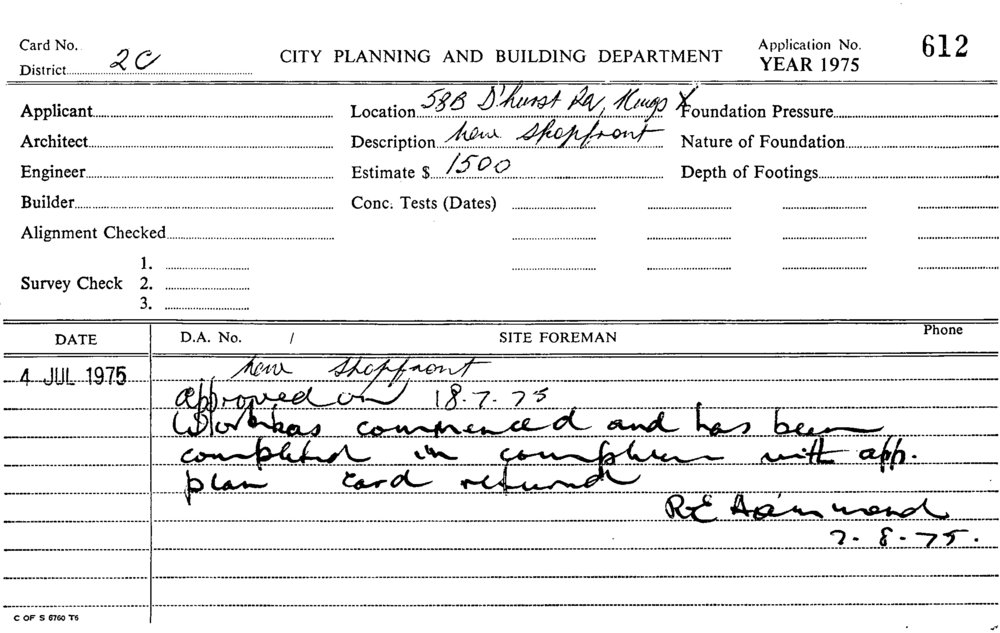 Card No. CITY PLANNING AND BUILDING DEPARTMENT Application No. 612
District 2C YEAR 1975
Applicant Location 58B D'hurst Rd, Kings X Foundation Pressure
Architect Description New Shopfront Nature of Foundation
Engineer Estimate $ 1500 Depth of Footings
Builder Conc. Tests (Dates)
Alignment Checked
1.
Survey Check 2.
3.
DATE D.A. No. / SITE FOREMAN Phone
4 JUL 1975 New Shopfront
approved on 18.7.75
Work has commenced and has been
completed in with app.
plan card returned
R E Hammond
7.8.75.
C OF S 6760 T6